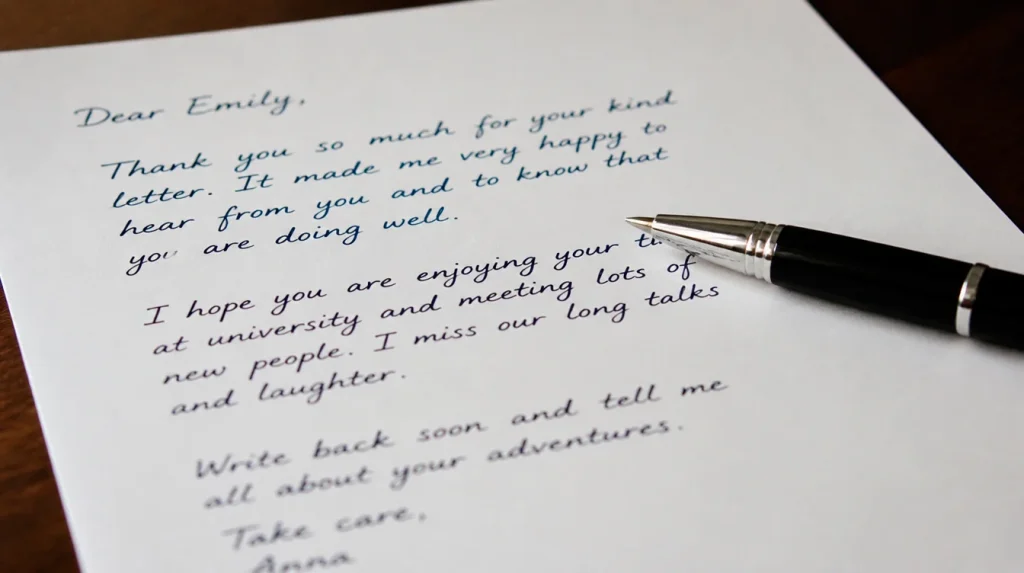 Dear Emily,
Thank you so much for your kind
letter. It made me very happy to
hear from you and to know that
you are doing well.
I hope you are enjoying your
at university and meeting lots of
new people. I miss our long talks
and laughter.
Write back soon and tell me
all about your adventures.
Take care,
Anna